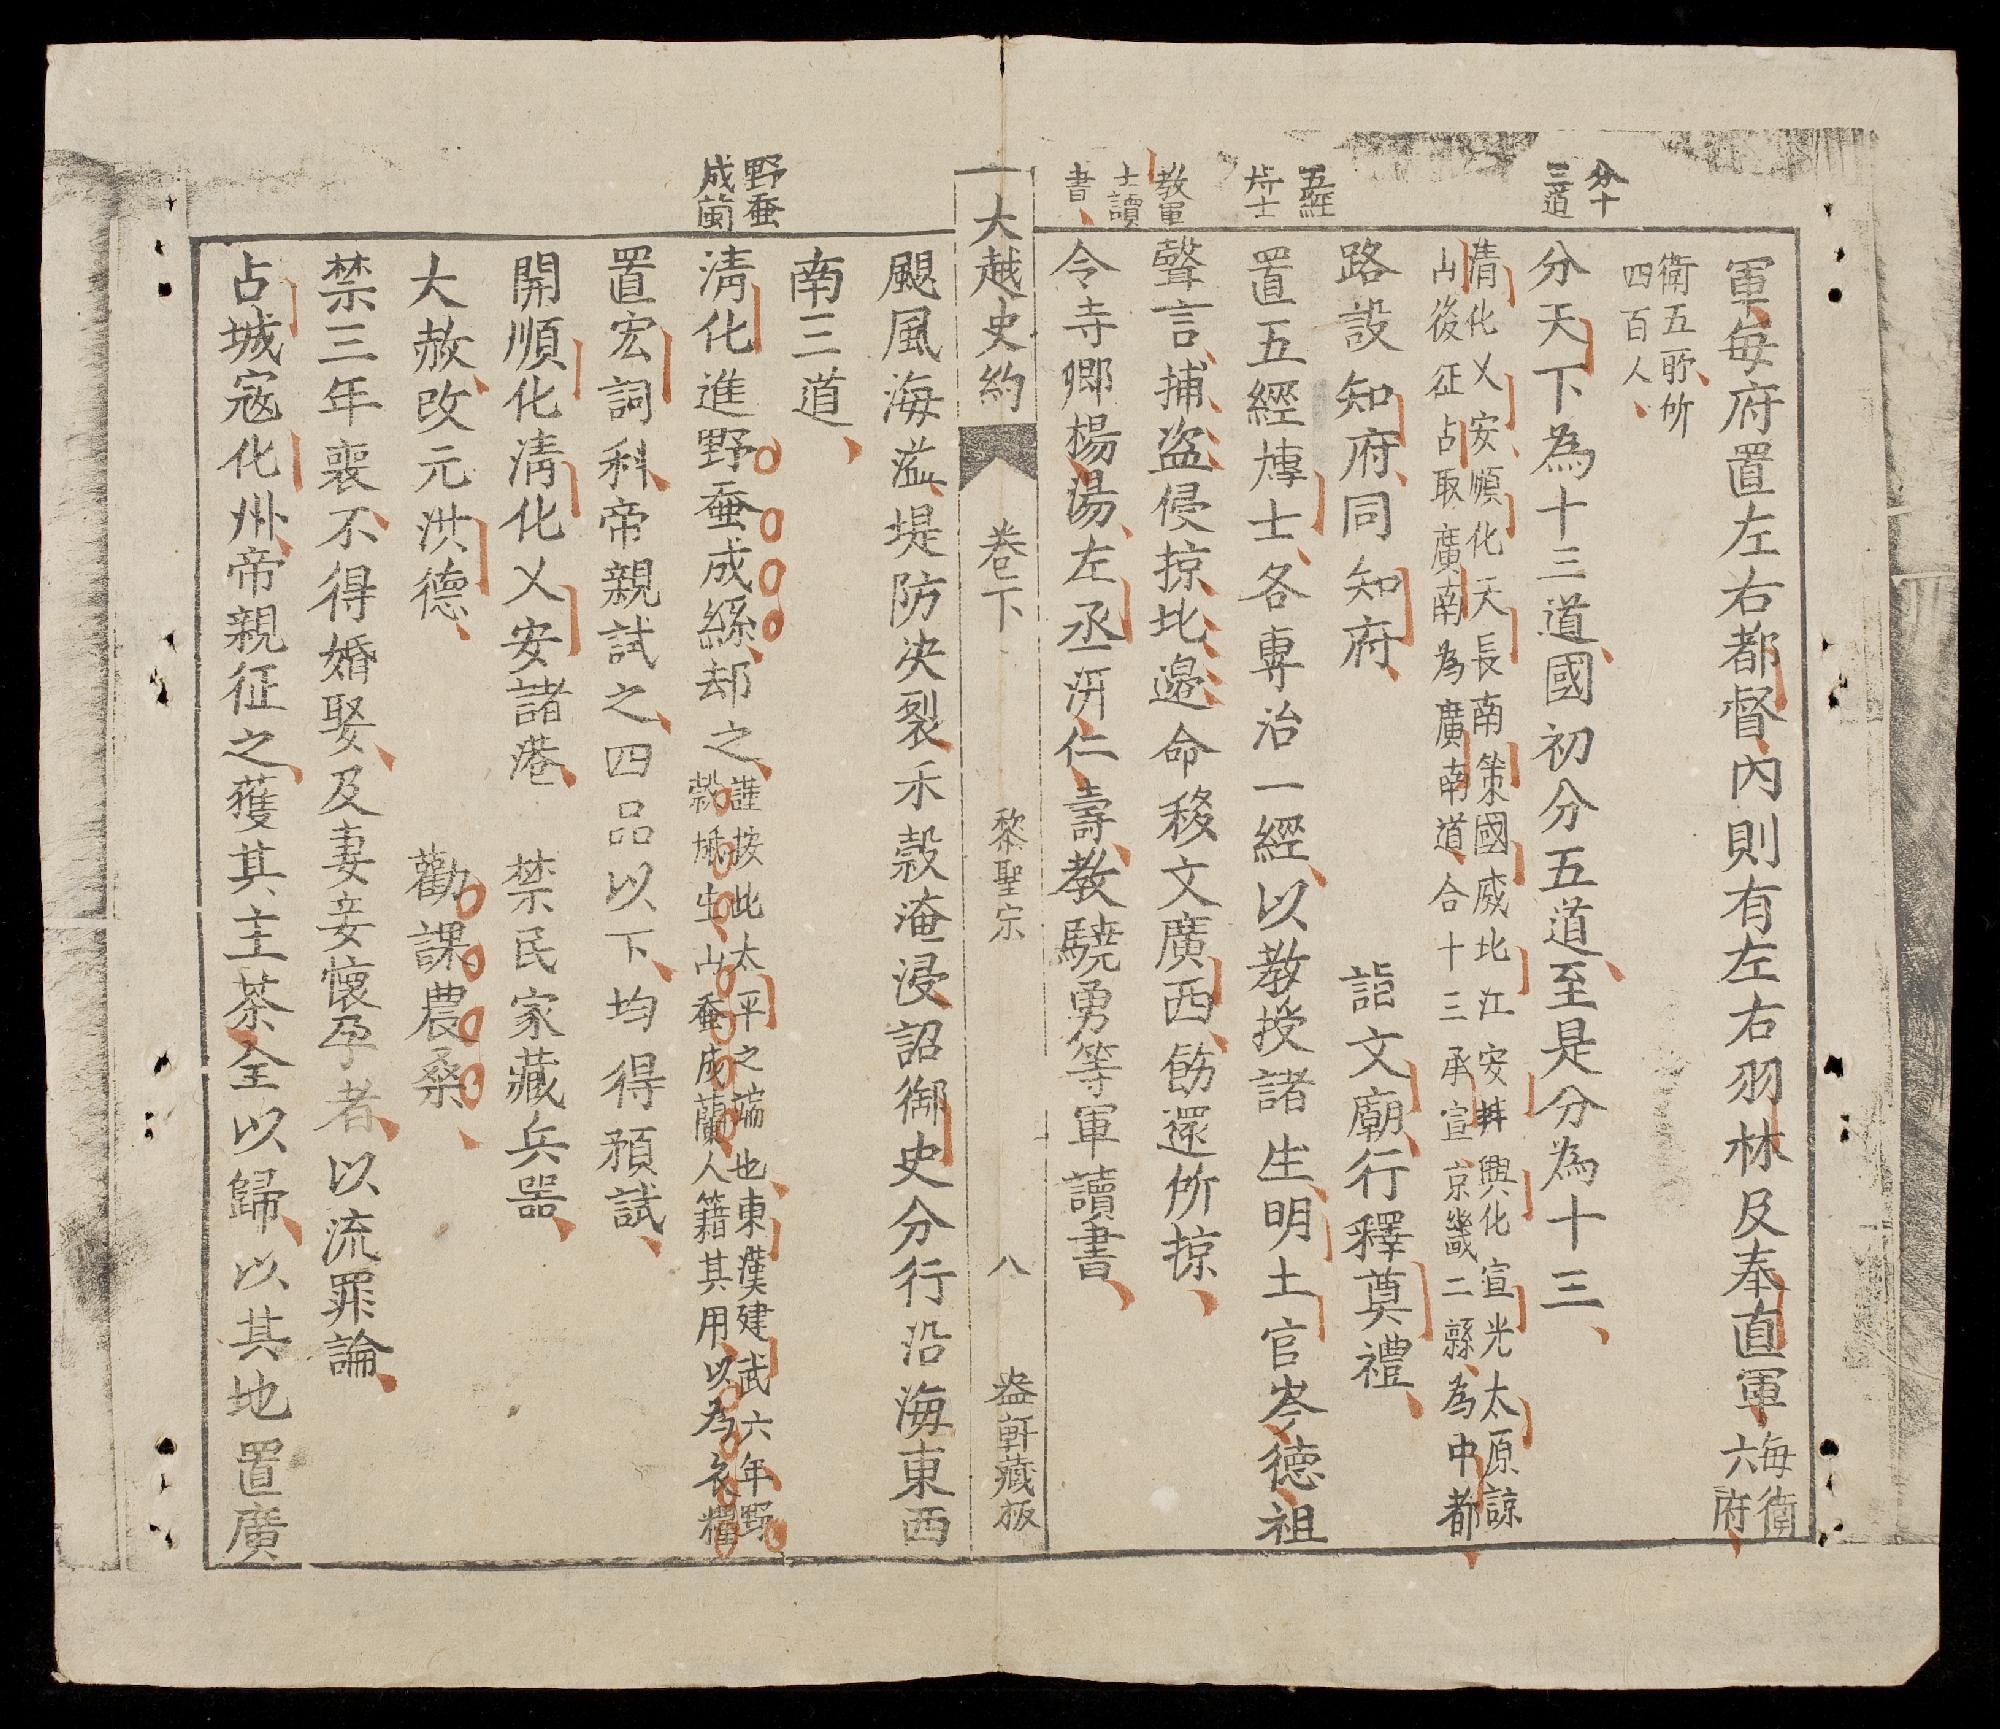 軍每府置左右都督內則有左右羽林及奉直軍每衛六府
衛五所所四百人
分十三道
分天下為十三道國初分五道至是分為十三
清化乂安順化天長南策國威北江安邦興化宣光太原諒
山後征占取廣南為廣南道合十三承宣京畿二縣為中都
路設知府同知府　詣文廟行釋奠禮
五經博士
置五經博士各專治一經以教授諸生明土官岑德祖
聲言捕盜侵掠北邊命移文廣西飭還所掠
教軍士讀書
令寺卿楊湯左丞阮仁壽教驍勇等軍讀書
大越史約　卷下　黎聖宗　八　盎軒藏板
颶風海溢堤防決裂禾穀淹浸詔御史分行沿海東西
南三道
野蚕成繭
清化進野蚕成絲却之謹按此太平之端也東漢建武六年野
穀旅生山蚕成繭人籍其用以為衣糧
置宏詞科帝親試之四品以下均得預試
開順化清化乂安諸港　禁民家藏兵器
大赦改元洪德　勸課農桑
禁三年喪不得婚娶及妻妾懷孕者以流罪論
占城寇化州帝親征之獲其主茶全以歸以其地置廣